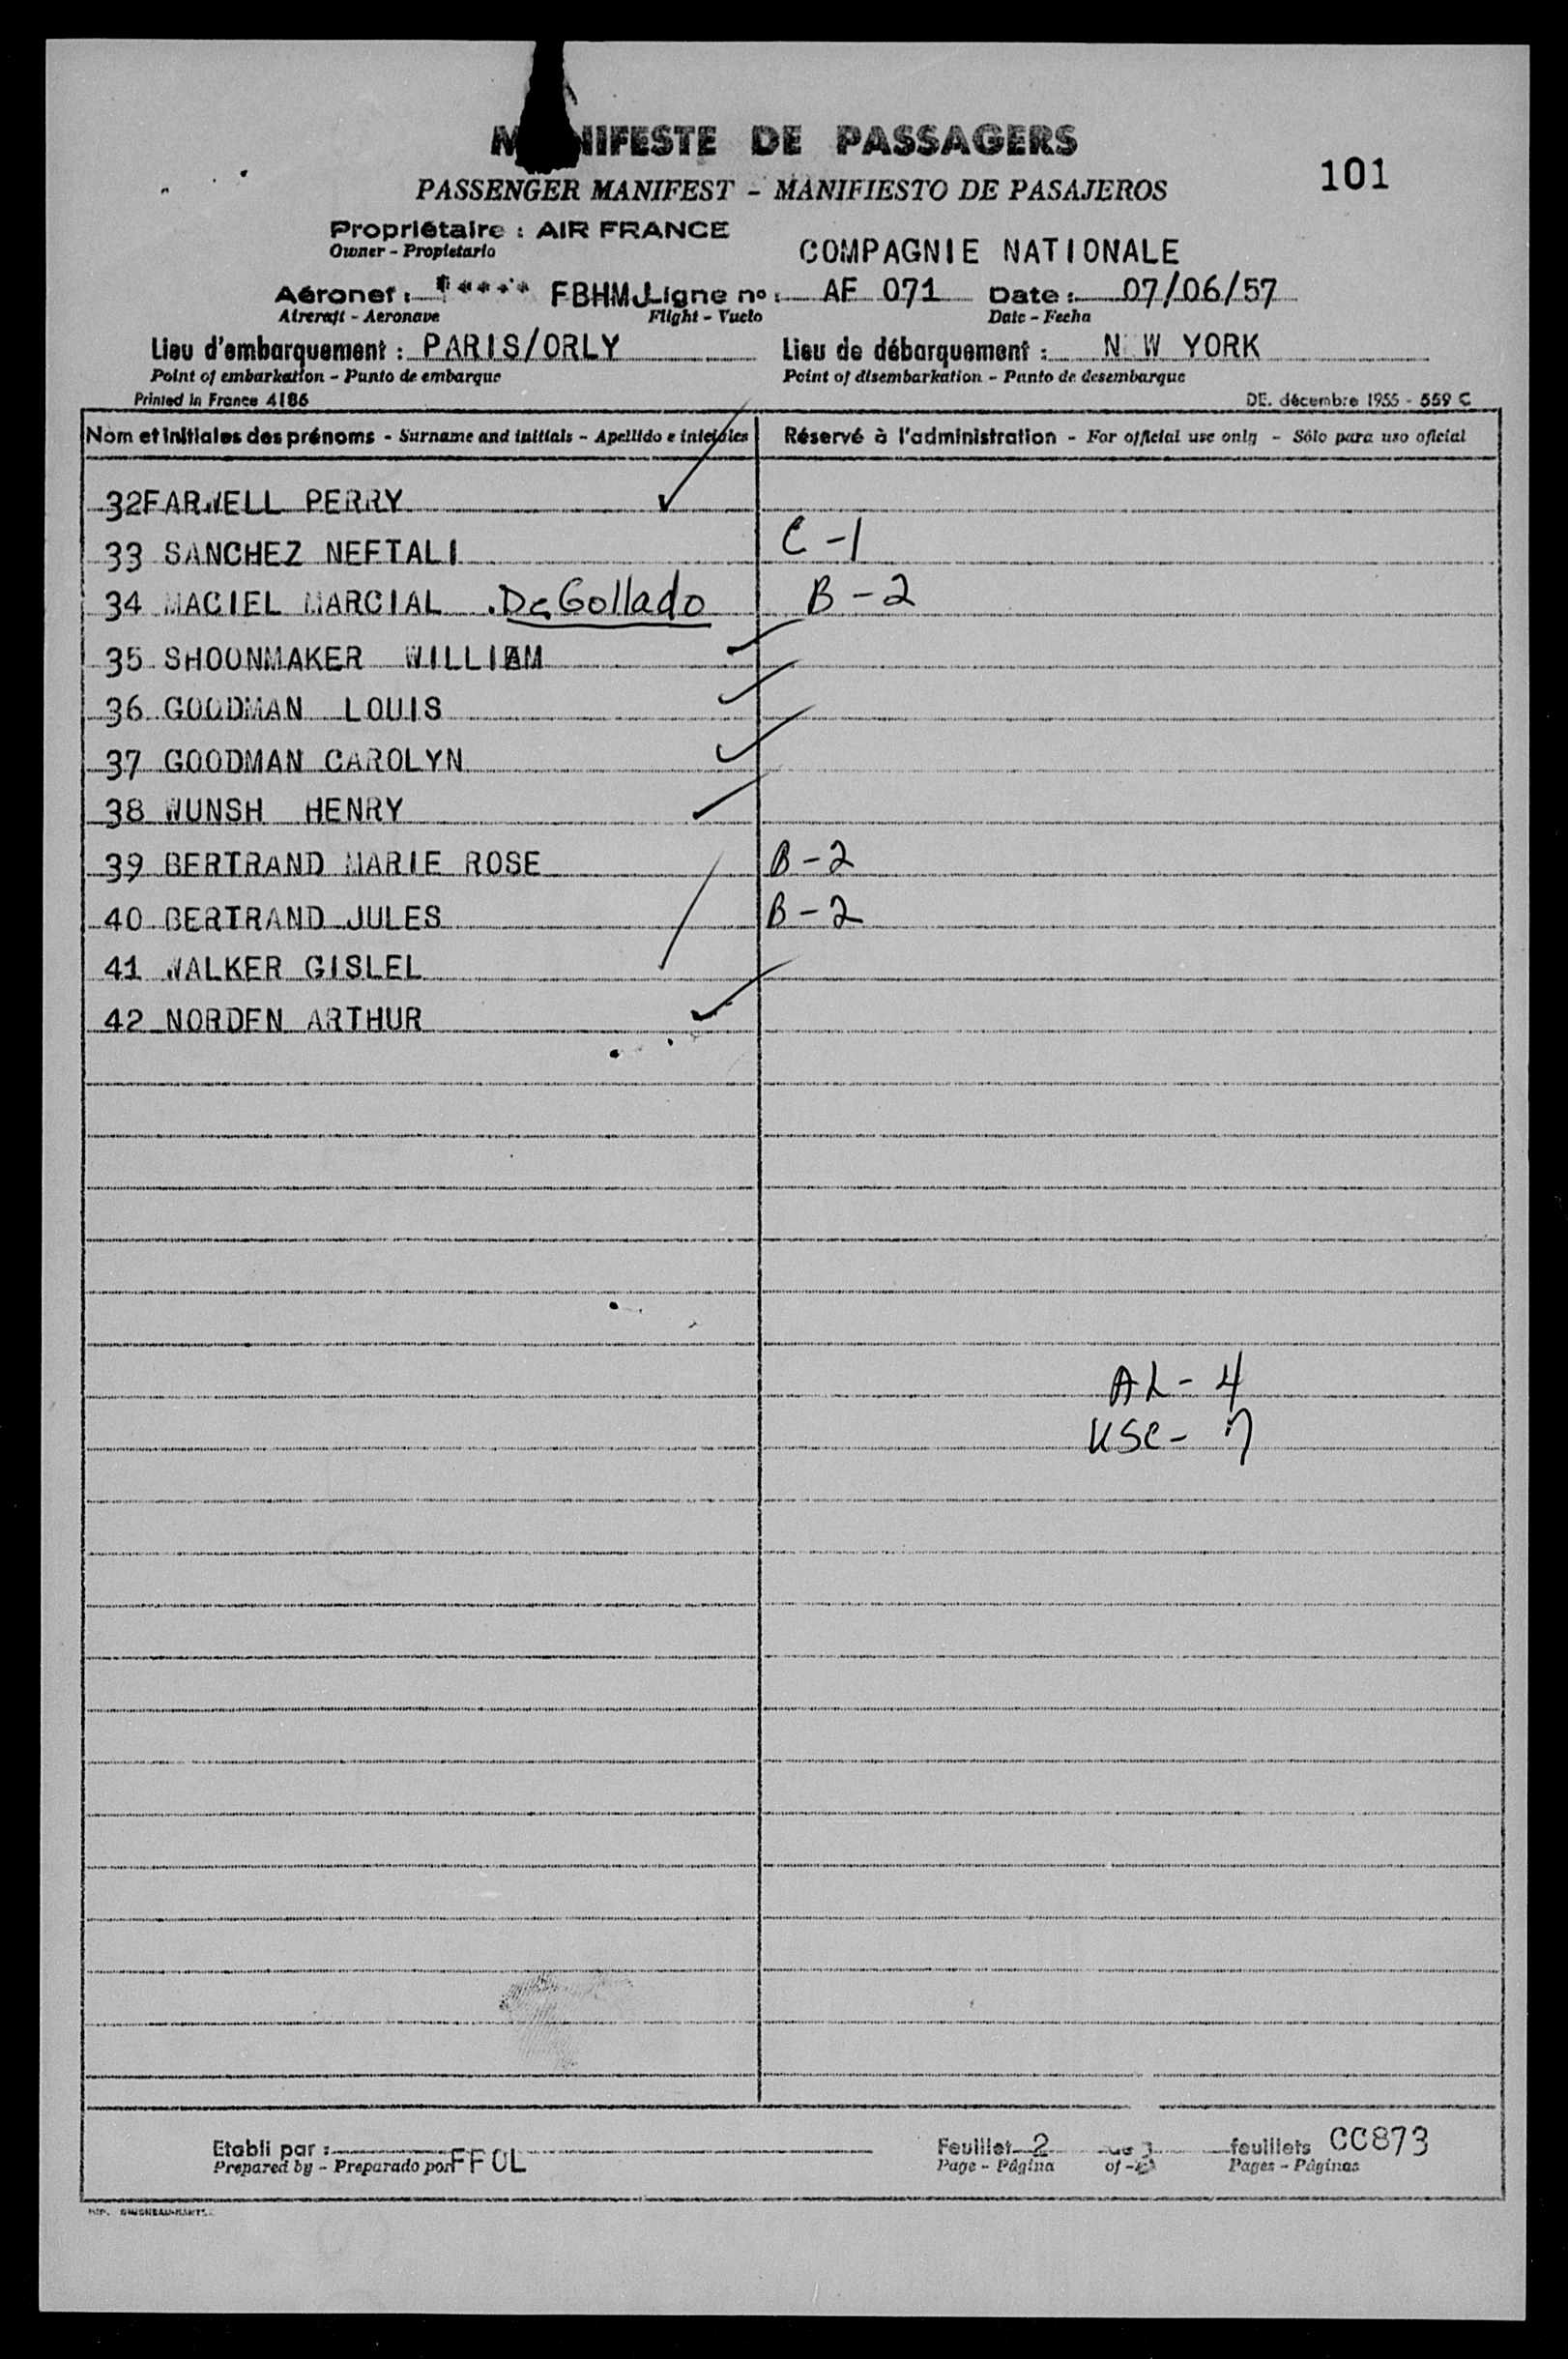 MANIFESTE DE PASSAGERS
PASSENGER MANIFEST - MANIFIESTO DE PASAJEROS
101
Propriétaire : AIR FRANCE
Owner - Propietario
COMPAGNIE NATIONALE
Aéronef : ***** FBHMJ Ligne no : AF 071 Date : 07/06/57
Aircraft - Aeronave Flight - Vuelo Date - Fecha
Lieu d'embarquement : PARIS/ORLY Lieu de débarquement : N W YORK
Point of embarkation - Punto de embarque Point of disembarkation - Punto de desembarque
Printed in France 4186 DE. décembre 1955 - 559 C
Nom et initiales des prénoms - Surname and initials - Apellido e iniciales Réservé à l'administration - For official use only - Sólo para uso oficial
32FARWELL PERRY
33 SANCHEZ NEFTALI C-1
34 MACIEL MARCIAL .DeGollado B-2
35 SHOONMAKER WILLIAM
36 GOODMAN LOUIS
37 GOODMAN CAROLYN
38 WUNSH HENRY
39 BERTRAND MARIE ROSE B-2
40 BERTRAND JULES B-2
41 WALKER GISLEL
42 NORDEN ARTHUR
AL- 4
USC- 7
Etabli par : FFOL Feuillet 2 feuillets CC873
Prepared by - Preparado por Page - Página of - Pages - Páginas